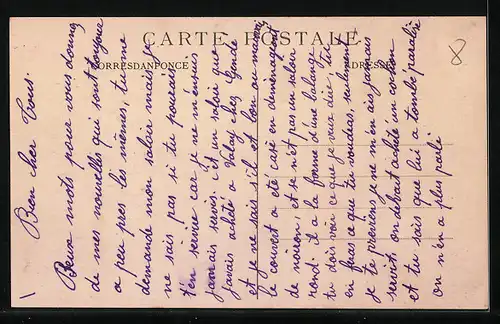 CARTE POSTALE
CORRESPONDANCE
ADRESSE
8
Bien cher Tous.
Deux mots pour vous donner
de mes nouvelles qui sont toujours
a peu pres les mêmes, tu me
demande mon saloir mais je
ne sais pas si tu pourais
t'en servire car je ne m'en suis
jamais servis. c'et un saloir que
j'avais acheté a Valay chez Gende
et je ne sais s'il et bon ou mauvais
le couvert a été cassé en demenagent
de noiron, et se n'et pas un saloir
rond. il a la forme d'une balance
tu doit voir ce que je veux dire, tu
en feras ce que tu voudras, seulment
je te previens je ne m'en ais jamais
servit. on devait acheté un cochon
et tu sais que lui a tombé paralisé
on n'en a plus parlé